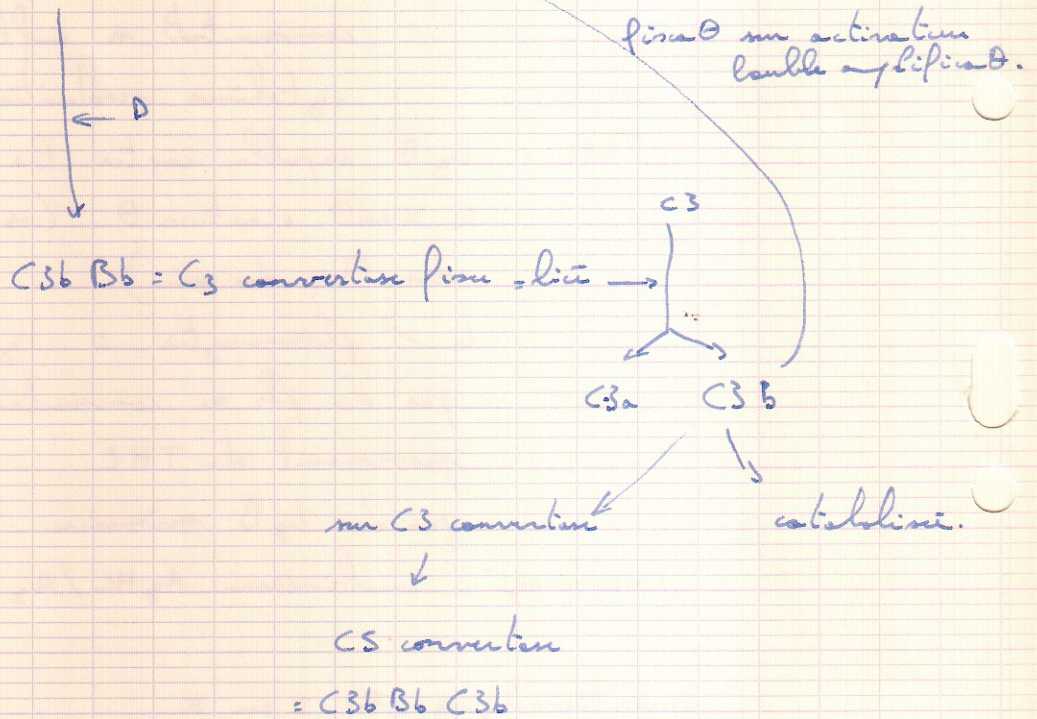 fixaθ sur activateur
boucle amplificaθ.
D
C3
C3b Bb = C3 convertase fixée - liée
C3a C3b
sur C3 convertase catabolisé.
C5 convertase
= C3b Bb C3b